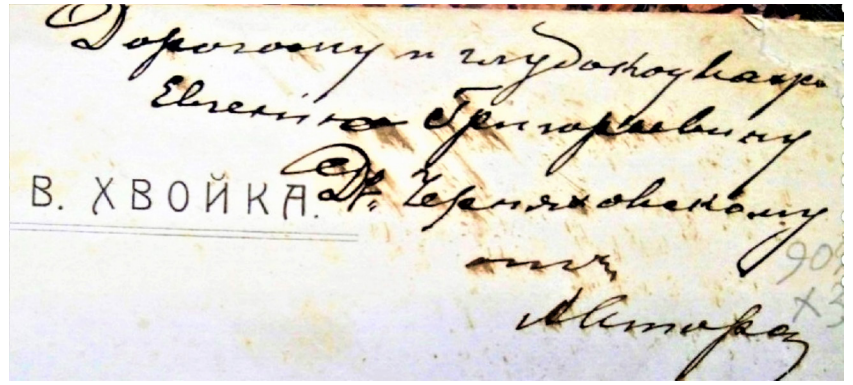 Дорогому и глубокоуваж.
Евгенію Григорьевичу
В. ХВОЙКА.
Др. Черняховскому
отъ
Автора
904
х3